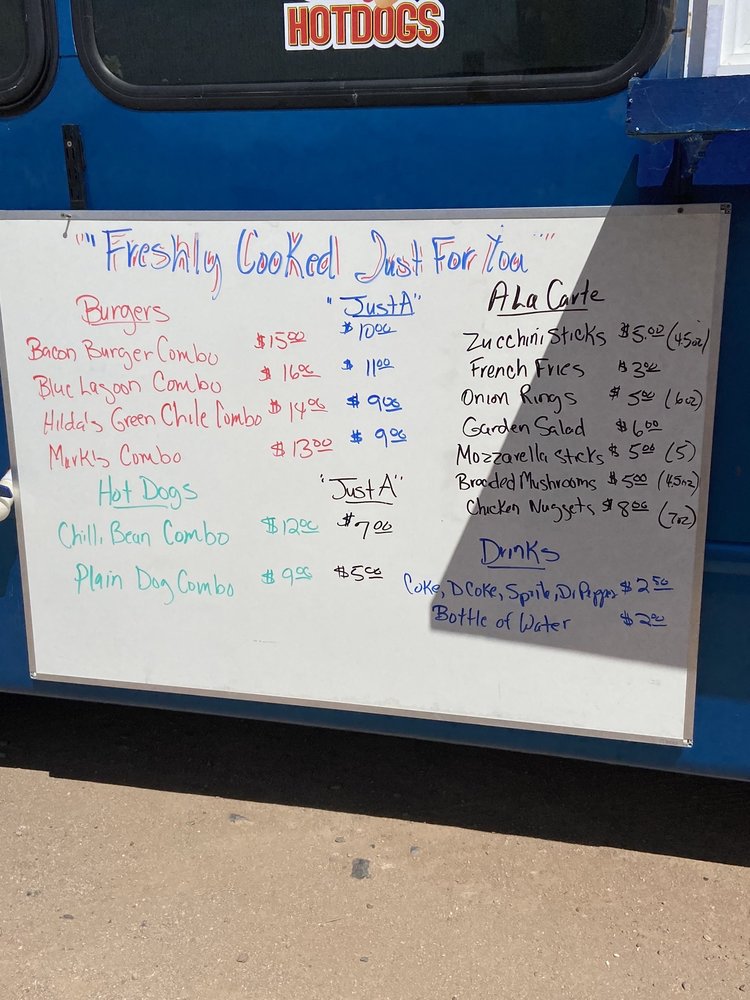 HOTDOGS
""Freshly Cooked Just For You""
Burgers "JustA"
Bacon Burger Combo $15.00 $10.00
Blue Lagoon Combo $16.00 $11.00
Hilda's Green Chile Combo $14.00 $9.00
Mark's Combo $13.00 $9.00
Hot Dogs "JustA"
Chili Bean Combo $12.00 $7.00
Plain Dog Combo $9.00 $5.00
A La Carte
Zucchini Sticks $5.00 (4.5oz)
French Fries $3.00
Onion Rings $5.00 (6oz)
Garden Salad $6.00
Mozzarella Sticks $5.00 (5)
Breaded Mushrooms $5.00 (4.5oz)
Chicken Nuggets $8.00 (7oz)
Drinks
Coke, D Coke, Sprite, Dr Pepper $2.50
Bottle of Water $2.00